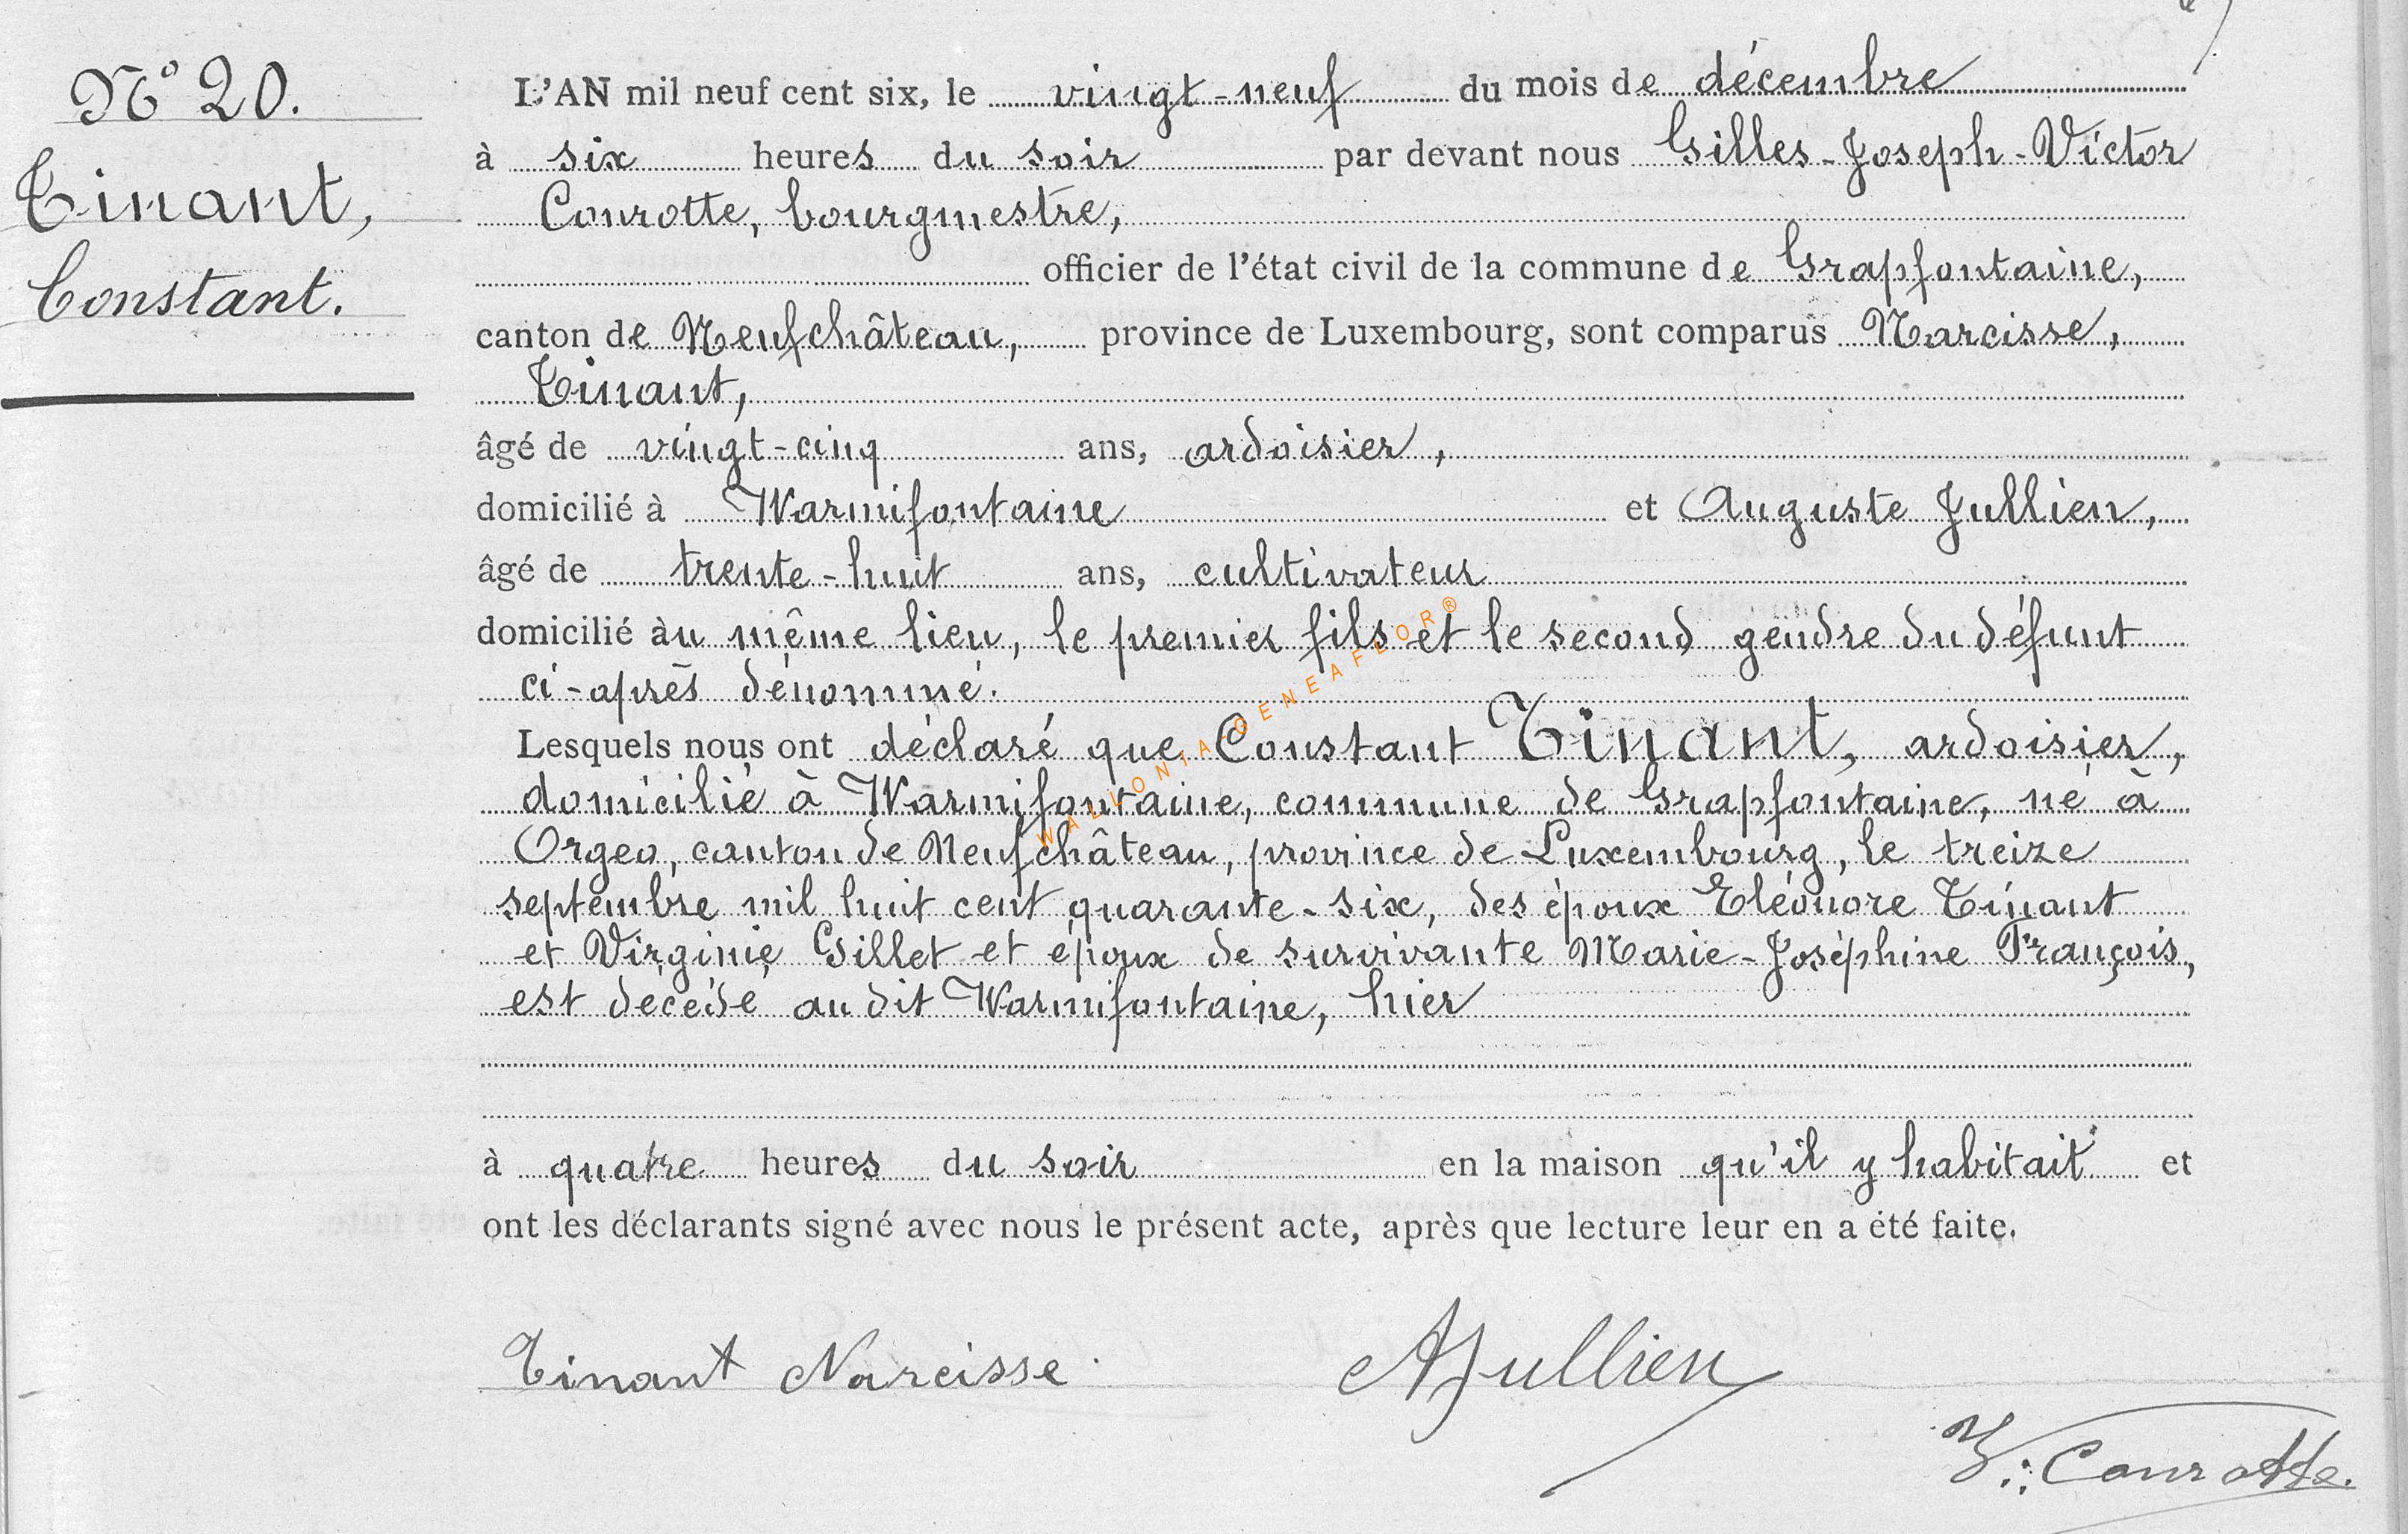 N° 20.
Tinant,
Constant.
L'AN mil neuf cent six, le vingt-neuf du mois de décembre
à six heures du soir par devant nous Gilles-Joseph-Victor
Conrotte, bourgmestre,
officier de l'état civil de la commune de Grapfontaine,
canton de Neufchâteau, province de Luxembourg, sont comparus Narcisse,
Tinant,
âgé de vingt-cinq ans, ardoisier,
domicilié à Warmifontaine et Auguste Jullien,
âgé de trente-huit ans, cultivateur
domicilié au même lieu, le premier fils et le second gendre du défunt
ci-après dénommé.
Lesquels nous ont déclaré que Constant Tinant, ardoisier,
domicilié à Warmifontaine, commune de Grapfontaine, né à
Orgeo, canton de Neufchâteau, province de Luxembourg, le treize
septembre mil huit cent quarante-six, des époux Eléonore Tinant
et Virginie Gillet et époux de survivante Marie-Joséphine François,
est décédé au dit Warmifontaine, hier
à quatre heures du soir en la maison qu'il y habitait et
ont les déclarants signé avec nous le présent acte, après que lecture leur en a été faite.
Tinant Narcisse.
AJullien
V. Conrotte.
WALLONIA-GENEAFLOR®